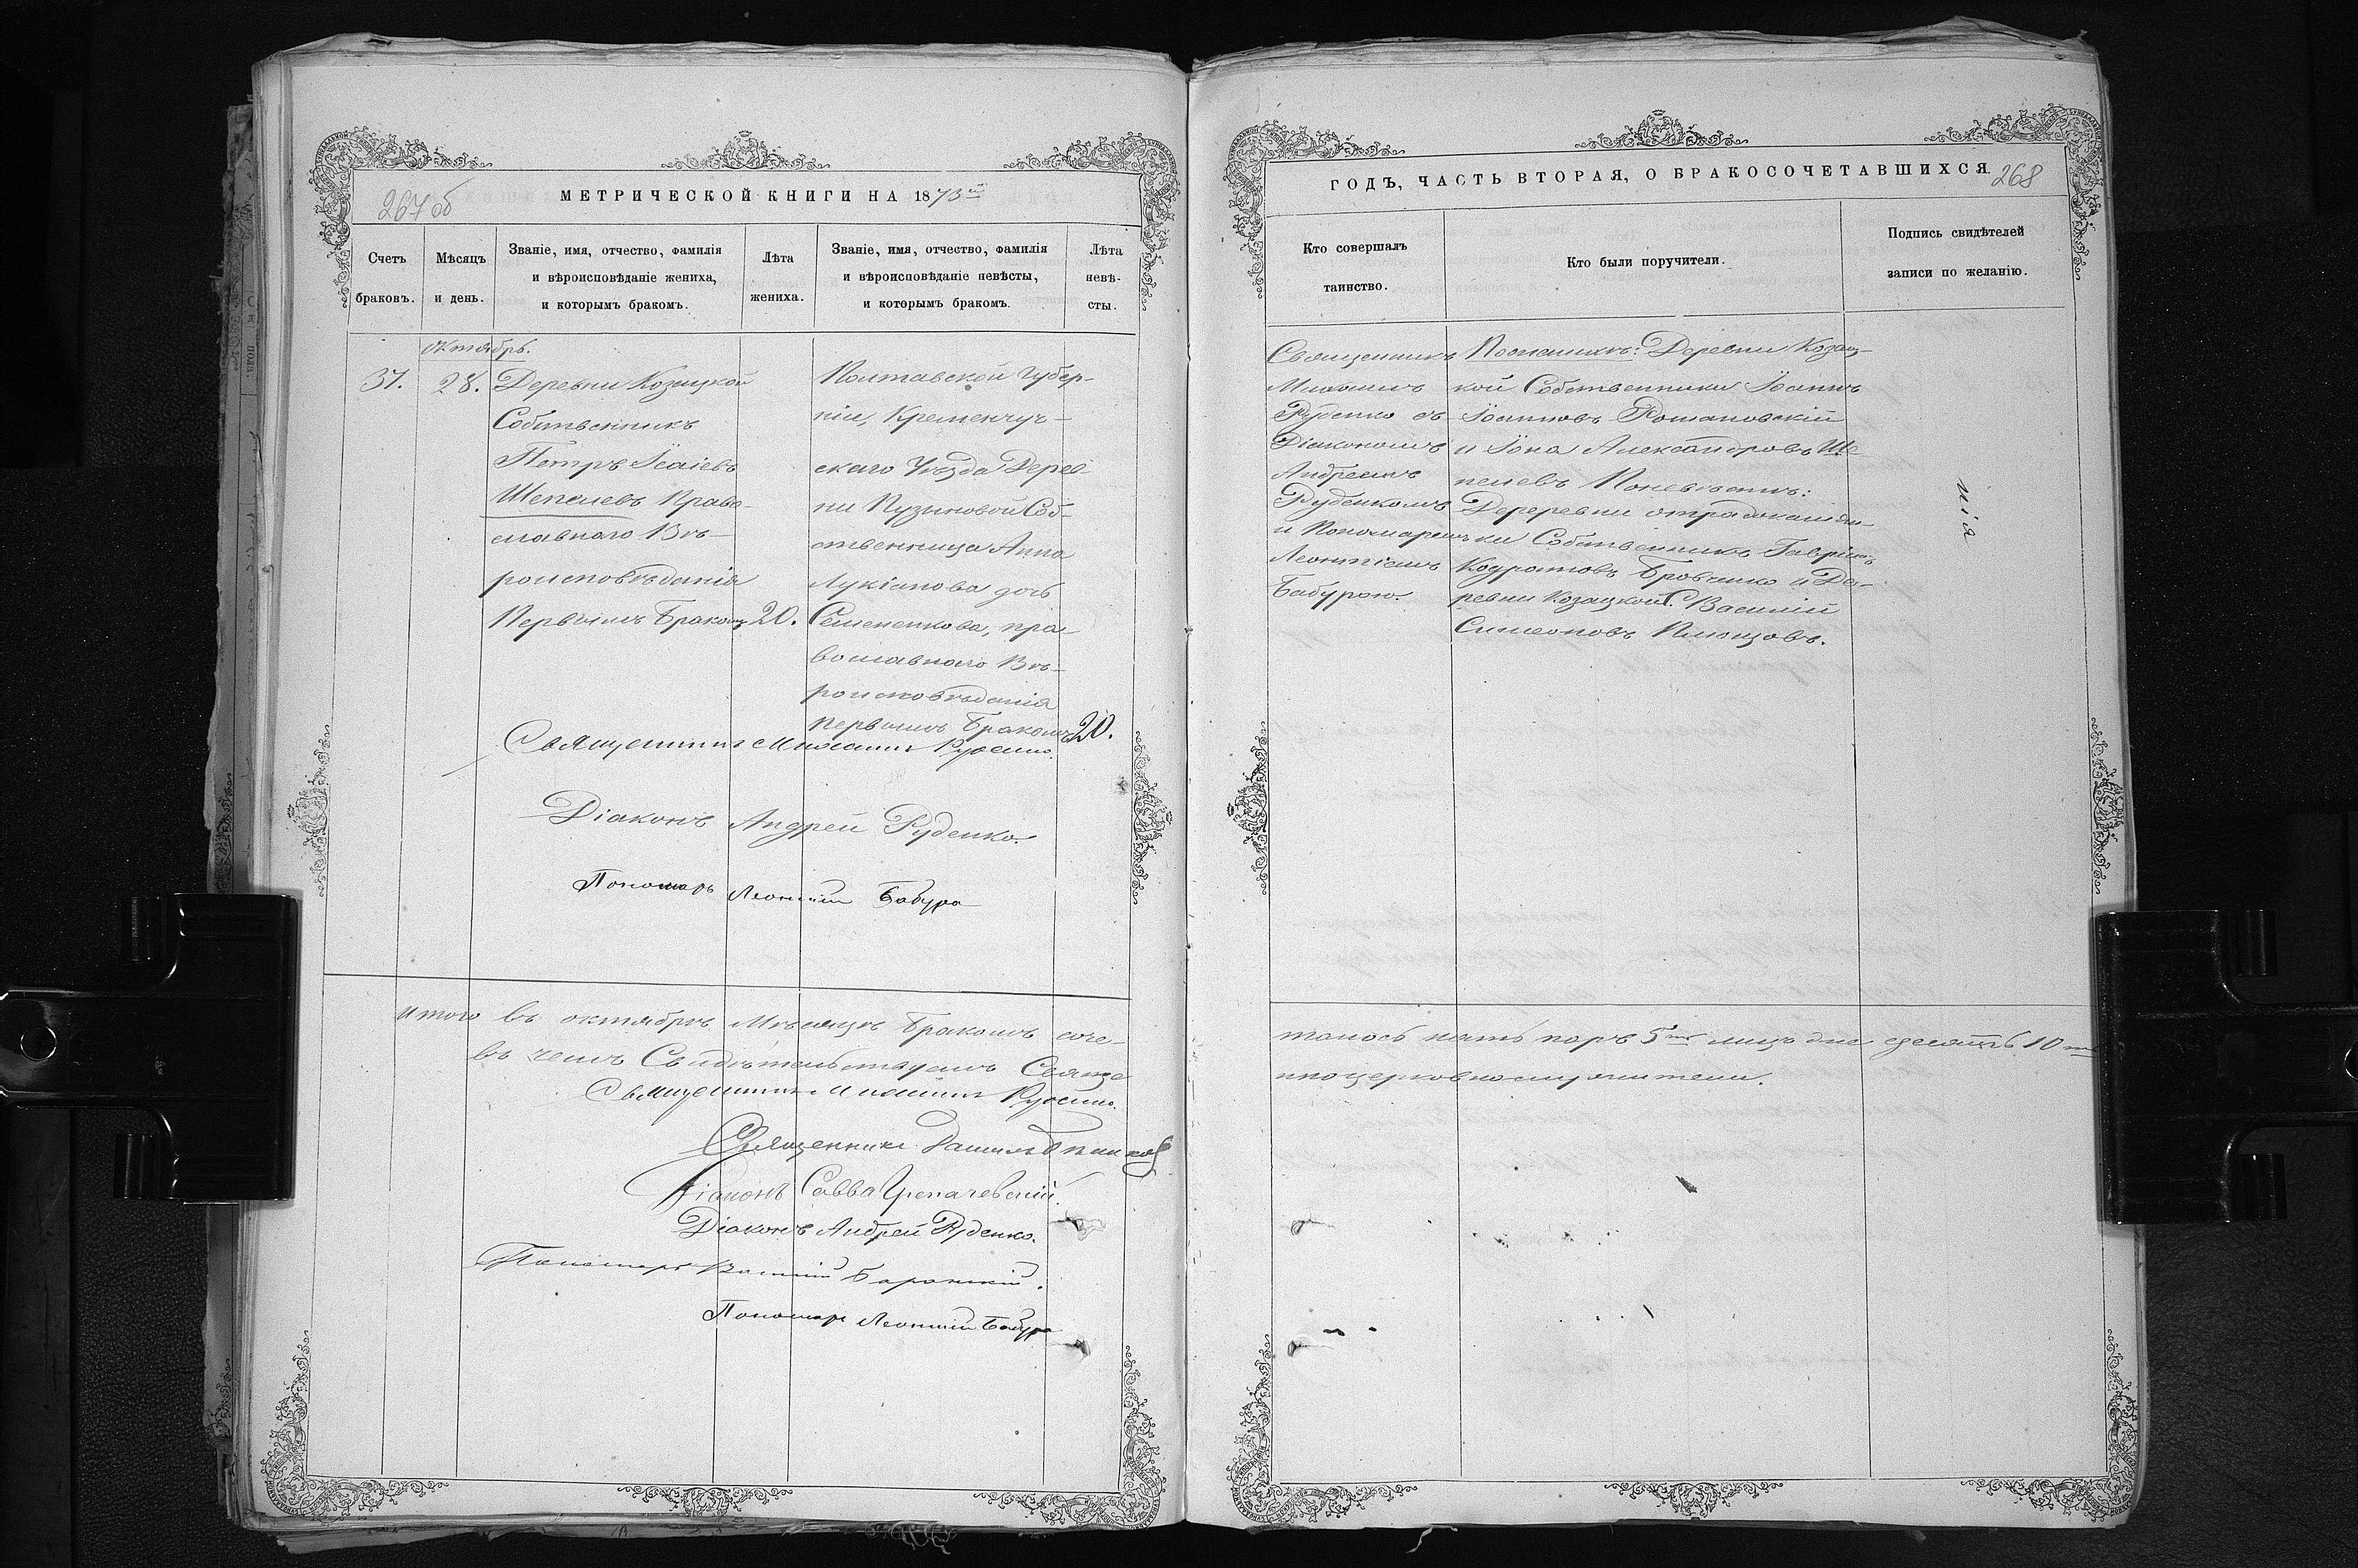 267 об
МЕТРИЧЕСКОЙ КНИГИ НА 1873й
Счетъ браковъ.
Мѣсяцъ и день.
Званіе, имя, отчество, фамилія
и вѣроисповѣданіе жениха,
и которымъ бракомъ.
Лѣта жениха.
Званіе, имя, отчество, фамилія
и вѣроисповѣданіе невѣсты,
и которымъ бракомъ.
Лѣта невѣ-
сты.
октябрь.
37.
28.
Деревни Козацкой
Собственникъ
Петръ Исаіевъ
Шепелевъ Право-
славнаго Вѣ-
роисповѣданія
Первымъ Бракомъ
20.
Полтавской Губер-
ніи, Кременчуч-
скаго Уѣзда Дерев-
ни Пузиковой Соб-
ственница Анна
Лукіанова дочь
Семененкова, пра-
вославнаго Вѣ-
роисповѣданія
первымъ Бракомъ
20.
Священникъ Михаилъ Руденко.
Діаконъ Андрей Руденко.
Пономарь Леонтій Бабура
итого въ октябрѣ Мѣсяцѣ Бракомъ соче-
въ чемъ Свидѣтельствуемъ Свяще
Священникъ Михаилъ Руденко.
Священникъ
Діаконъ Савва
Діаконъ Андрей Руденко.
Пономарь
Пономарь Леонтій Бабура
ГОДЪ, ЧАСТЬ ВТОРАЯ, О БРАКОСОЧЕТАВШИХСЯ.
268
Кто совершалъ
таинство.
Кто были поручители.
Подпись свидѣтелей
записи по желанію.
Священникъ
Михаилъ
Руденко съ
Діакономъ
Андреемъ
Руденкомъ
и Пономаремъ
Леонтіемъ
Бабурою.
По женихѣ: Деревни Козац-
кой Собственники Іоаннъ
Іоанновъ Романовскій
и Іона Александровъ Ше
пелевъ По невѣстѣ:
Дереревни отрадокамен-
ки Собственникъ Гавріилъ
Кодратовъ Бровченко и Де-
ревни Козацкой С. Василій
Симеоновъ
нія
талось пять паръ 5ть лицъ же десять 10ть
нноцерковнослужители.